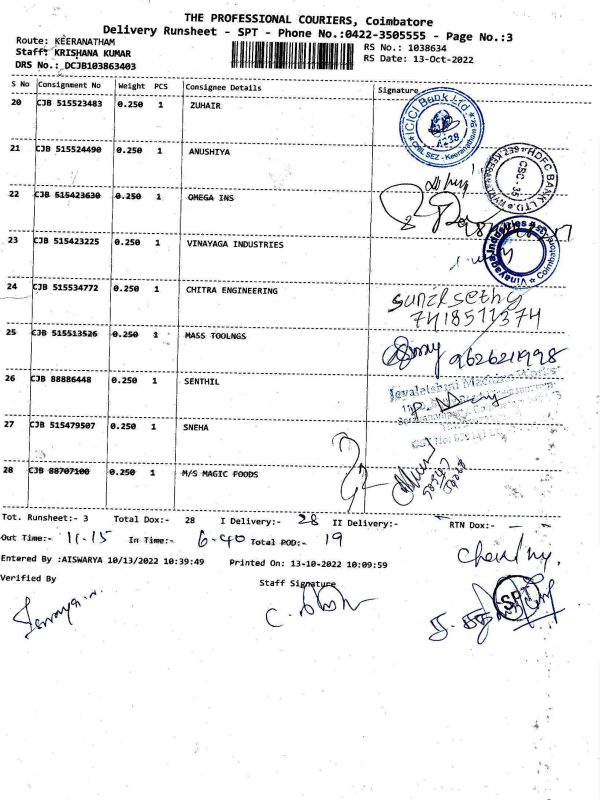 THE PROFESSIONAL COURIERS, Coimbatore
Delivery Runsheet - SPT - Phone No.:0422-3505555 - Page No.:3
Route: KEERANATHAM
RS No.: 1038634
Staff: KRISHANA KUMAR
RS Date: 13-Oct-2022
DRS No.: DCJB103863403
S No Consignment No Weight PCS Consignee Details Signature
20 CJB 515523483 0.250 1 ZUHAIR
ICICI Bank Ltd
CHIL SEZ - Keeranatham
21 CJB 515524490 0.250 1 ANUSHIYA
HDFC BANK LTD.
22 CJB 515423630 0.250 1 OMEGA INS
23 CJB 515423225 0.250 1 VINAYAGA INDUSTRIES
Vinayaga Industries
Coimbatore
24 CJB 515534772 0.250 1 CHITRA ENGINEERING
7418511374
25 CJB 515513526 0.250 1 MASS TOOLNGS
9626211998
26 CJB 88886448 0.250 1 SENTHIL
27 CJB 515479507 0.250 1 SNEHA
28 CJB 88707100 0.250 1 M/S MAGIC FOODS
Tot. Runsheet:- 3 Total Dox:- 28 I Delivery:- 28 II Delivery:- RTN Dox:-
Out Time:- 11-15 In Time:- 6-40 Total POD:- 19
Entered By :AISWARYA 10/13/2022 10:39:49 Printed On: 13-10-2022 10:09:59
Verified By Staff Signature
SPT